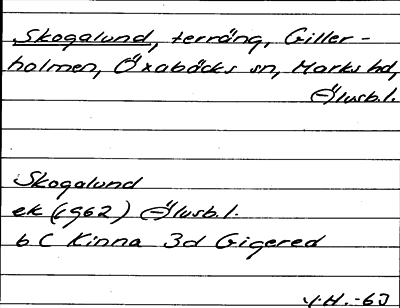 Skogalund, terräng, Giller-
holmen, Öxabäcks sn, Marks hd,
Älvsb.l.
Skogalund
ek (1962) Älvsb.l.
6 C Kinna 3d Gigered
Y.H. -63